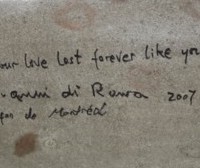 our love last forever like you
di Roma 2007
de Montréal